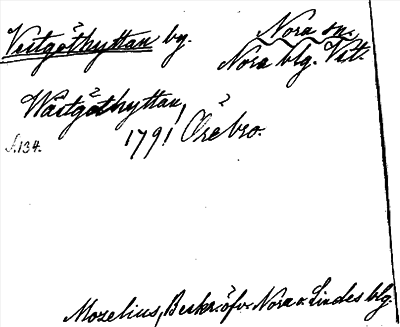 Vestgöthyttan by.
Nora sn.
Nora blg. Vstl.
Wästgöthyttan,
1791 Örebro.
s. 134.
Mozelius, Beskr. öfv. Nora o. Lindes blg.